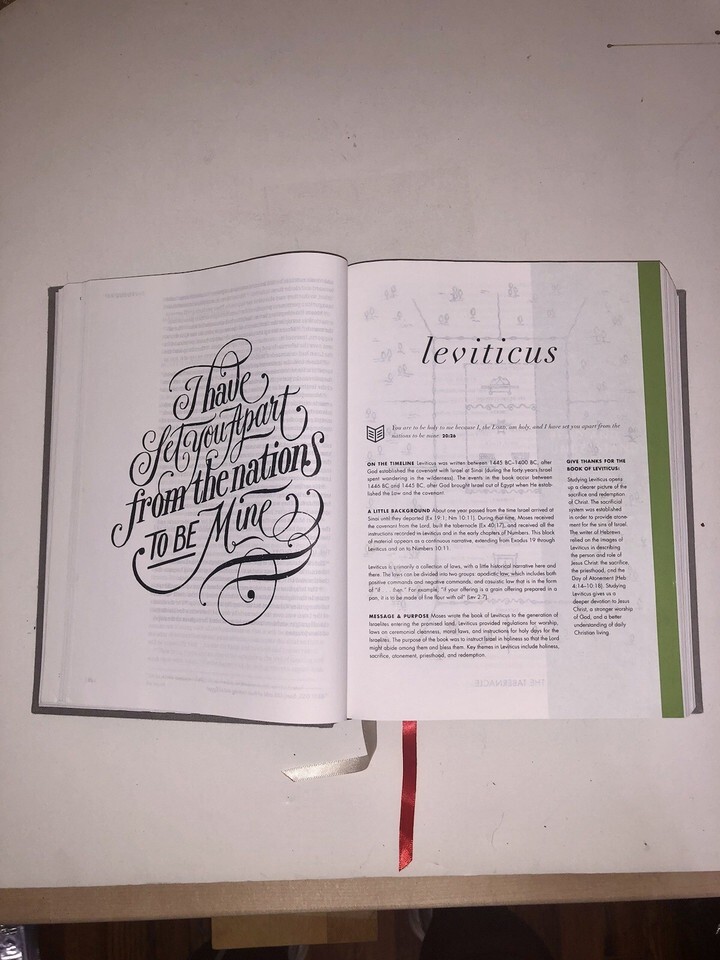 I have
Set You Apart
from the nations
TO BE Mine
leviticus
You are to be holy to me because I, the LORD, am holy, and I have set you apart from the
nations to be mine. 20:26
ON THE TIMELINE Leviticus was written between 1445 BC–1400 BC, after
God established the covenant with Israel at Sinai (during the forty years Israel
spent wandering in the wilderness). The events in the book occur between
1446 BC and 1445 BC, after God brought Israel out of Egypt when He estab-
lished the Law and the covenant.
A LITTLE BACKGROUND About one year passed from the time Israel arrived at
Sinai until they departed (Ex 19:1; Nm 10:11). During that time, Moses received
the covenant from the Lord, built the tabernacle (Ex 40:17), and received all the
instructions recorded in Leviticus and in the early chapters of Numbers. This block
of material appears as a continuous narrative, extending from Exodus 19 through
Leviticus and on to Numbers 10:11.
Leviticus is primarily a collection of laws, with a little historical narrative here and
there. The laws can be divided into two groups: apodictic law, which includes both
positive commands and negative commands, and casuistic law that is in the form
of "if . . . then." For example, "if your offering is a grain offering prepared in a
pan, it is to be made of fine flour with oil" (Lev 2:7).
MESSAGE & PURPOSE Moses wrote the book of Leviticus to the generation of
Israelites entering the promised land. Leviticus provided regulations for worship,
laws on ceremonial cleanness, moral laws, and instructions for holy days for the
Israelites. The purpose of the book was to instruct Israel in holiness so that the Lord
might abide among them and bless them. Key themes in Leviticus include holiness,
sacrifice, atonement, priesthood, and redemption.
GIVE THANKS FOR THE
BOOK OF LEVITICUS:
Studying Leviticus opens
up a clearer picture of the
sacrifice and redemption
of Christ. The sacrificial
system was established
in order to provide atone-
ment for the sins of Israel.
The writer of Hebrews
relied on the images of
Leviticus in describing
the person and role of
Jesus Christ: the sacrifice,
the priesthood, and the
Day of Atonement (Heb
4:14–10:18). Studying
Leviticus gives us a
deeper devotion to Jesus
Christ, a stronger worship
of God, and a better
understanding of daily
Christian living.
THE TABERNACLE